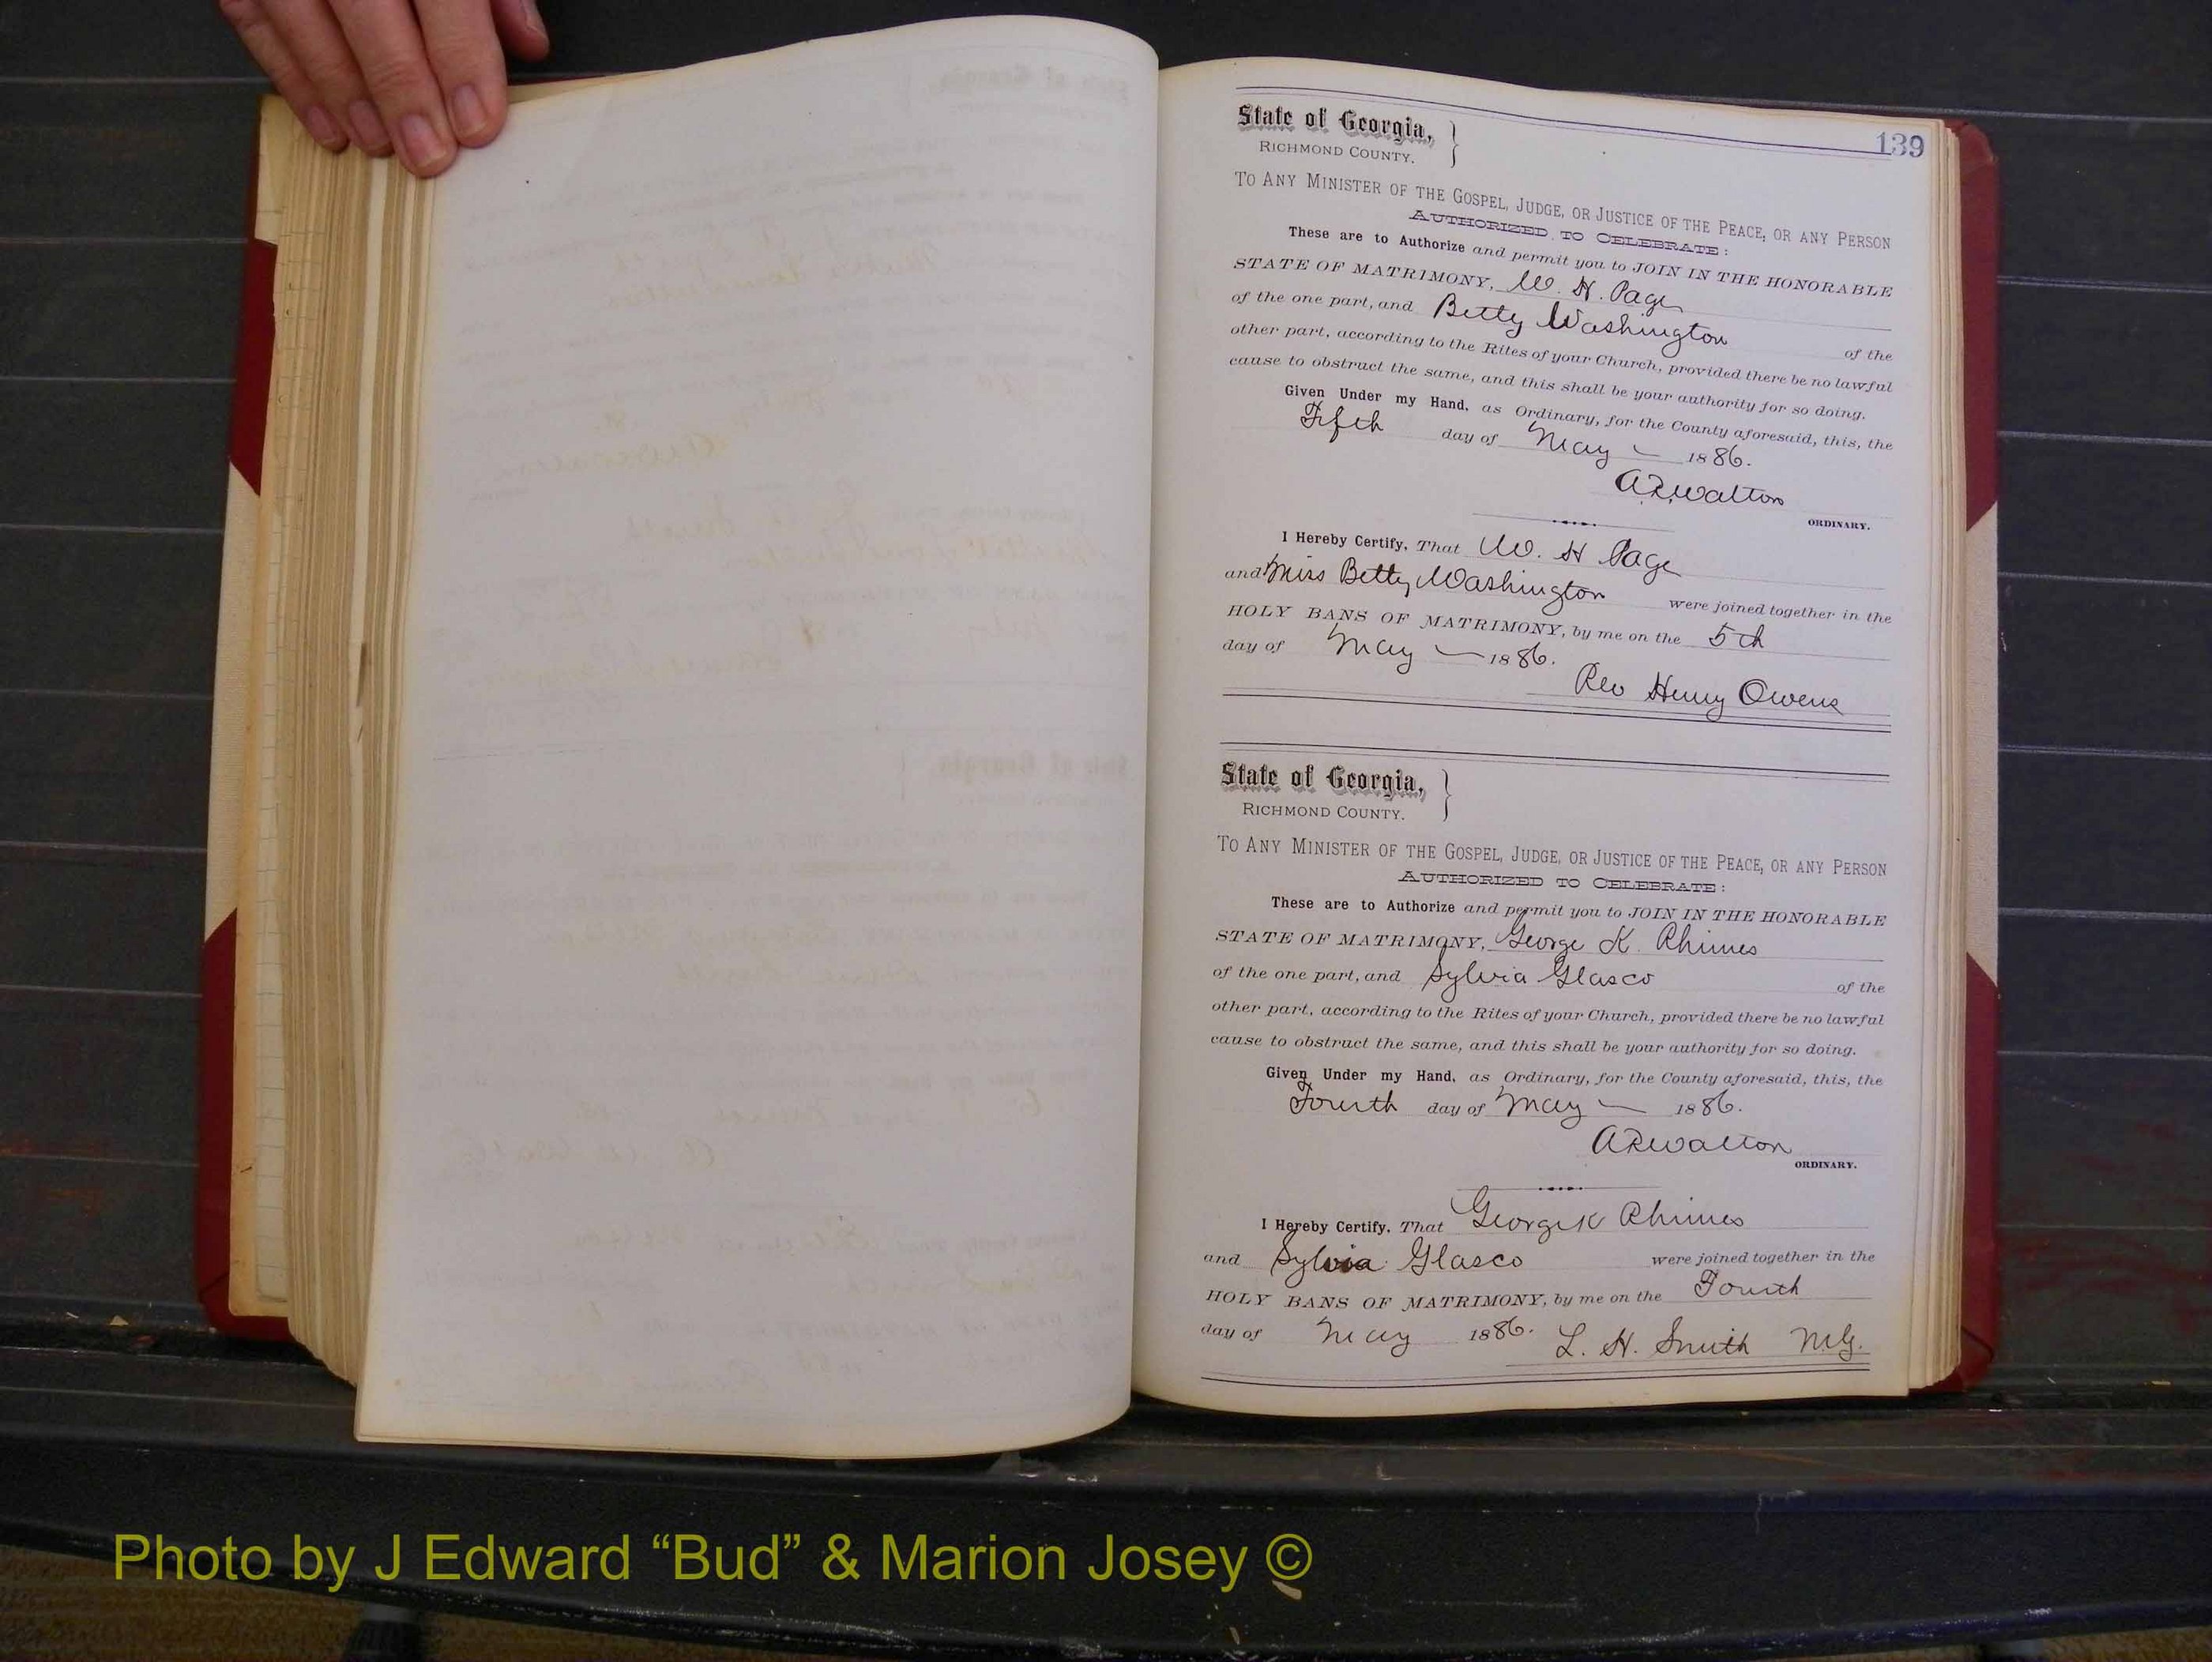 139
State of Georgia, }
RICHMOND COUNTY.
TO ANY MINISTER OF THE GOSPEL, JUDGE, OR JUSTICE OF THE PEACE, OR ANY PERSON
AUTHORIZED TO CELEBRATE:
These are to Authorize and permit you to JOIN IN THE HONORABLE
STATE OF MATRIMONY, W. H. Page
of the one part, and Betty Washington of the
other part, according to the Rites of your Church, provided there be no lawful
cause to obstruct the same, and this shall be your authority for so doing.
Given Under my Hand, as Ordinary, for the County aforesaid, this, the
Fifth day of May 1886.
A R Walton
ORDINARY.
I Hereby Certify, That W. H Page
and Miss Betty Washington were joined together in the
HOLY BANS OF MATRIMONY, by me on the 5th
day of May 1886.
Rev Henry Owens
State of Georgia, }
RICHMOND COUNTY.
TO ANY MINISTER OF THE GOSPEL, JUDGE, OR JUSTICE OF THE PEACE, OR ANY PERSON
AUTHORIZED TO CELEBRATE:
These are to Authorize and permit you to JOIN IN THE HONORABLE
STATE OF MATRIMONY, George K. Rhimes
of the one part, and Sylvia Glasco of the
other part, according to the Rites of your Church, provided there be no lawful
cause to obstruct the same, and this shall be your authority for so doing.
Given Under my Hand, as Ordinary, for the County aforesaid, this, the
Fourth day of May 1886.
A R Walton
ORDINARY.
I Hereby Certify, That George K Rhimes
and Sylvia Glasco were joined together in the
HOLY BANS OF MATRIMONY, by me on the Fourth
day of May 1886. L. H. Smith M.G.
Photo by J Edward “Bud” & Marion Josey ©